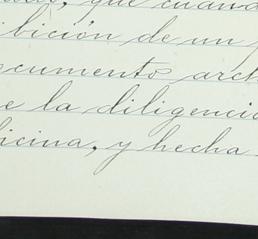 que cuand
bición de un
cumento arch
e la diligencia
icina, y hecha